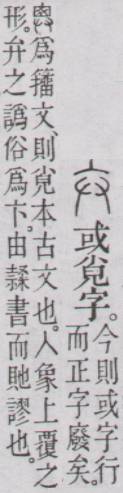 或覍字。
今則或字行
而正字廢矣。
爲籒文、則覍本古文也。人象上覆之
形。弁之譌俗爲卞。由隸書而貤謬也。